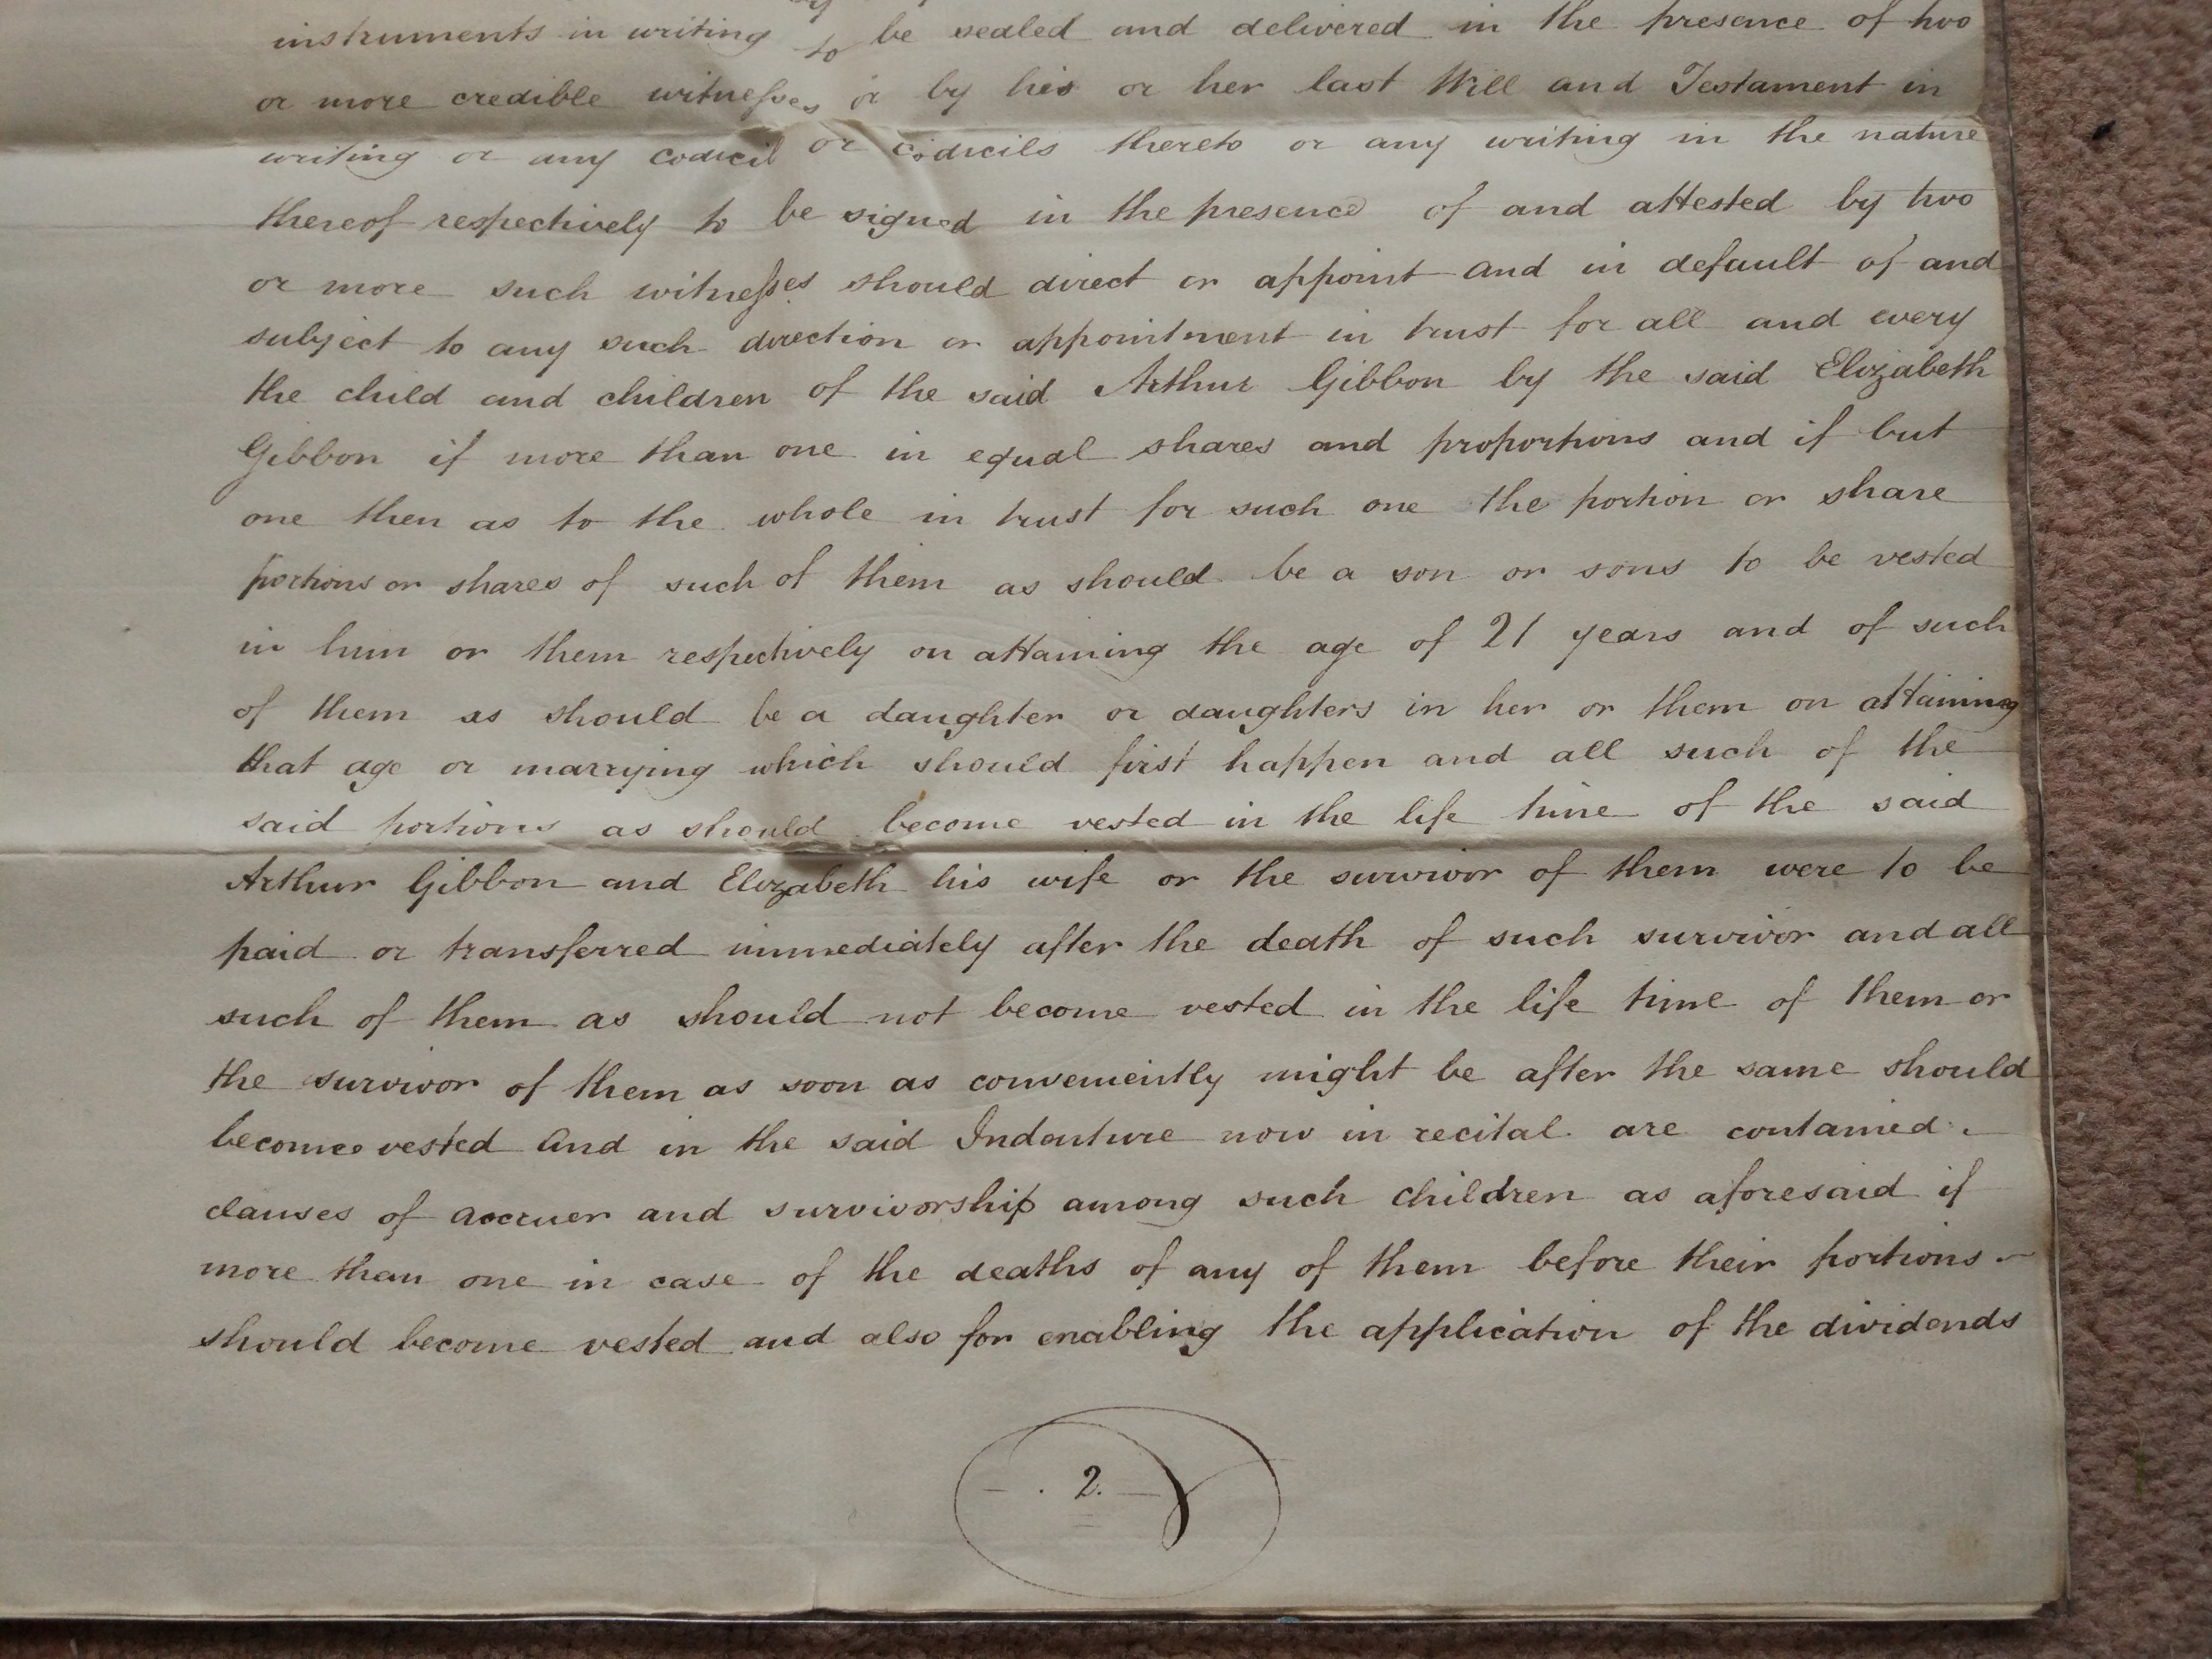 instruments in writing to be sealed and delivered in the presence of two
or more credible witnesses or by his or her last Will and Testament in
writing or any codicil or codicils thereto or any writing in the nature
thereof respectively to be signed in the presence of and attested by two
or more such witnesses should direct or appoint and in default of and
subject to any such direction or appointment in trust for all and every
the child and children of the said Arthur Gibbon by the said Elizabeth
Gibbon if more than one in equal shares and proportions and if but
one then as to the whole in trust for such one the portion or share
portions or shares of such of them as should be a son or sons to be vested
in him or them respectively on attaining the age of 21 years and of such
of them as should be a daughter or daughters in her or them on attaining
that age or marrying which should first happen and all such of the
said portions as should become vested in the life time of the said
Arthur Gibbon and Elizabeth his wife or the survivor of them were to be
paid or transferred immediately after the death of such survivor and all
such of them as should not become vested in the life time of them or
the survivor of them as soon as conveniently might be after the same should
become vested And in the said Indenture now in recital are contained
clauses of accruer and survivorship among such children as aforesaid if
more than one in case of the deaths of any of them before their portions
should become vested and also for enabling the application of the dividends
2.